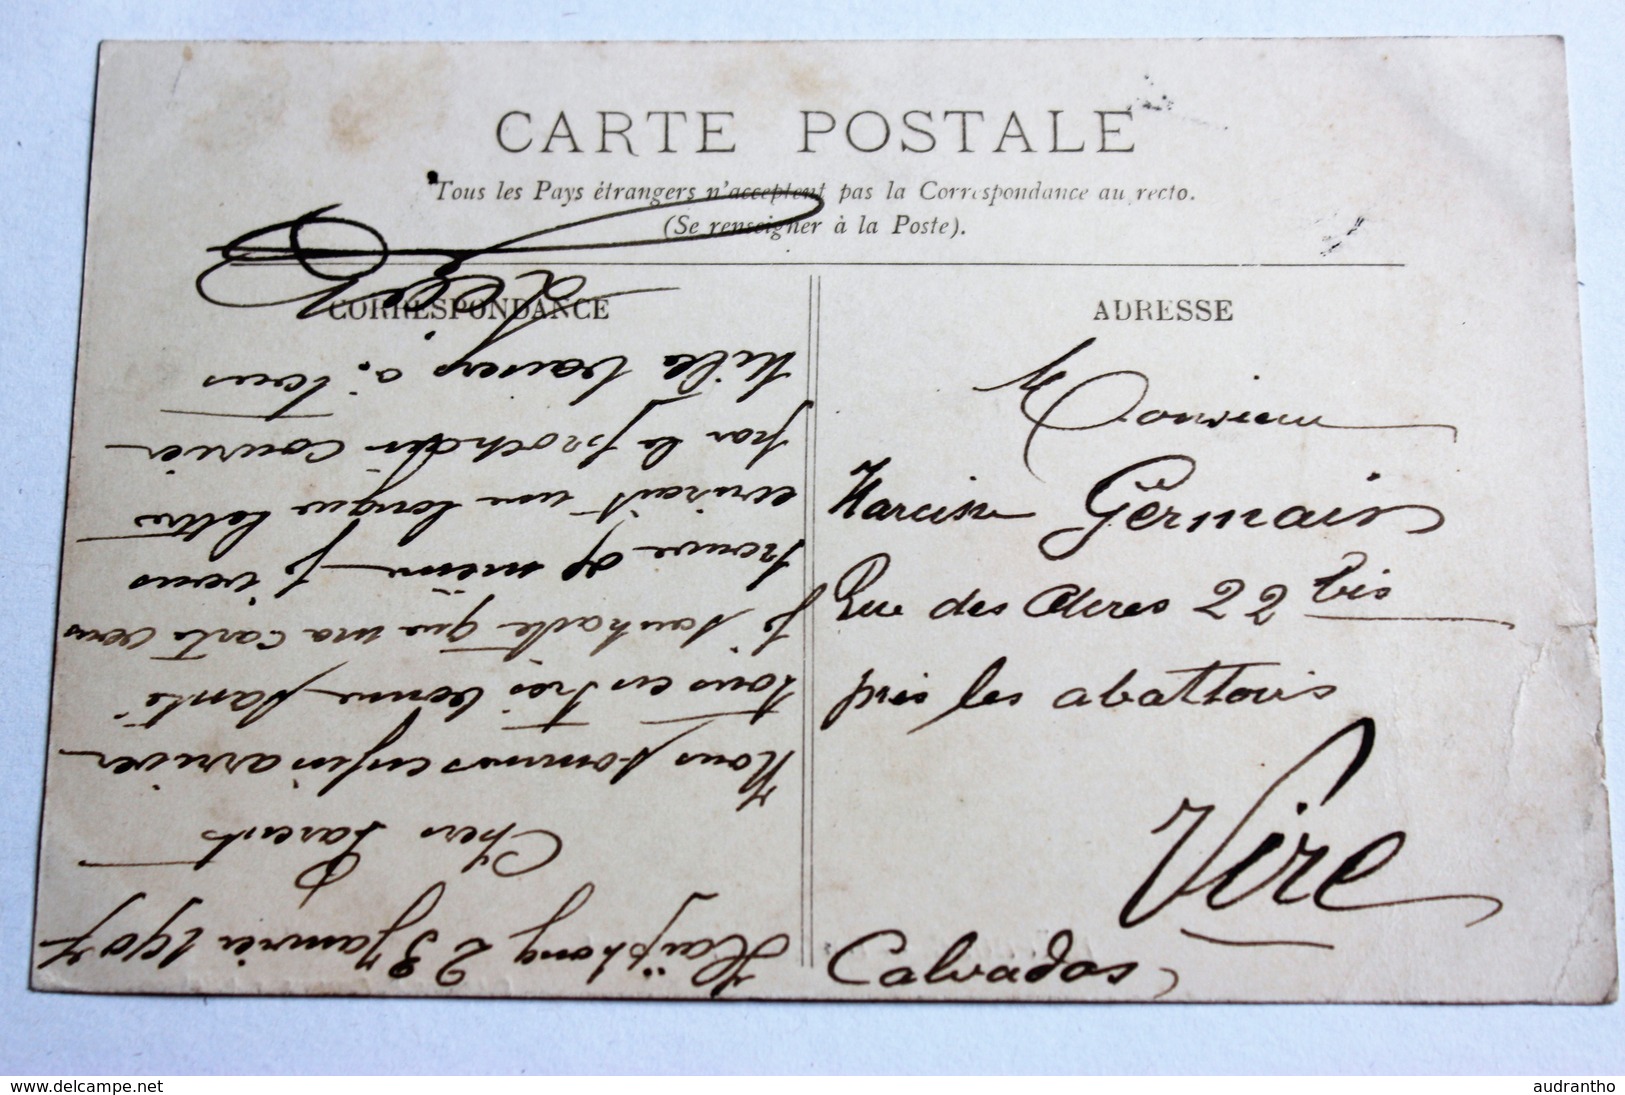 CARTE POSTALE
Tous les Pays étrangers n'acceptent pas la Correspondance au recto.
(Se renseigner à la Poste).
CORRESPONDANCE
Haïphong 23 Janvier 1907
Chers Parents
Nous sommes enfin arriver
tous en très bonne santé
je souhaite que ma carte vous
trouve de même je vous
écrirait une longue lettre
par la prochain courrier
Mille baisers à tous
ADRESSE
Monsieur
Narcisse Germain
Rue des Acres 22 bis
près les abattoirs
Vire
Calvados
www.delcampe.net
audrantho